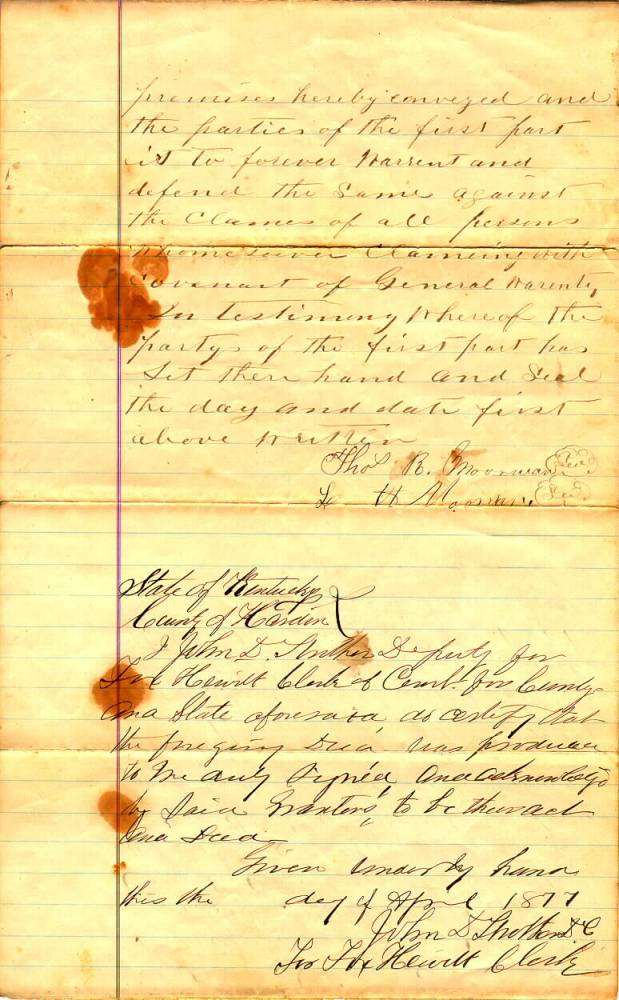 promises hereby conveyed and
the parties of the first part
is to forever Warrent and
defend the Same against
the Claimes of all persons
Whomesoever Claimeing with
Covenant of General Warenty
In testimony Whereof the
partys of the first part has
Set there hand and Seal
the day and date first
above Written
Thos R. Moorman Seal
H Moorman Seal
State of Kentucky
County of Hardin
I John D. Deputy for
Hewitt Clerk of Court for County
and State aforesaid, do certify that
the foregoing Deed was produced
to me duly Signed, and acknowledgd
by Said Grantors, to be their act
and Deed
Given under my hand
this the day of April 1877
John D D.C
For Hewitt Clerk